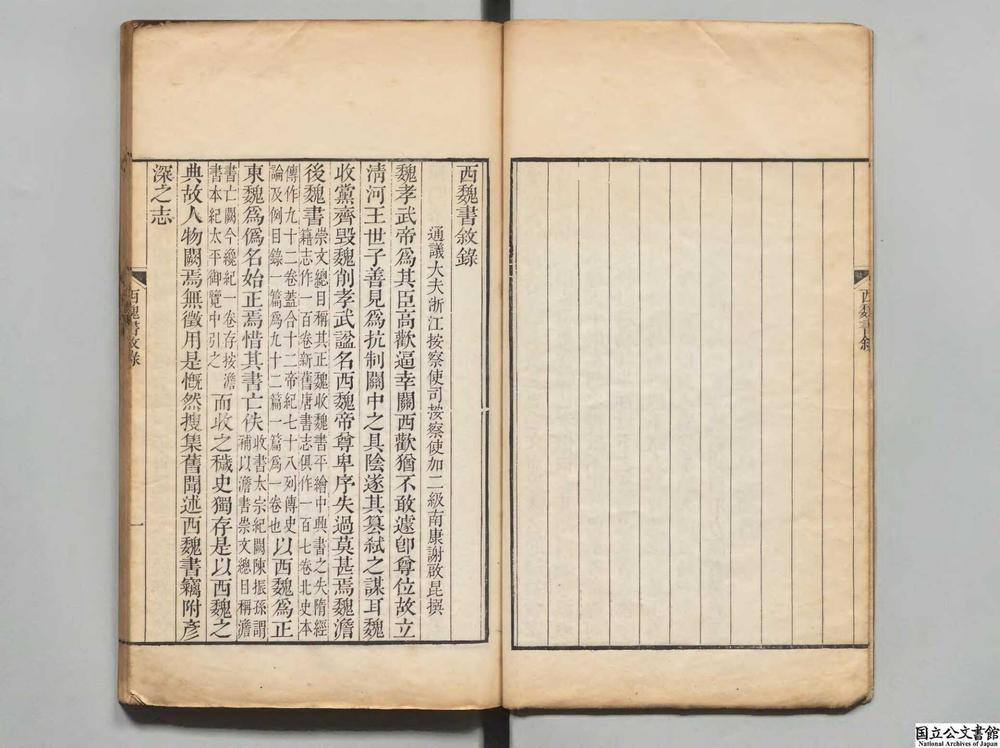 西魏書敘錄
通議大夫浙江按察使司按察使加二級南康謝啟昆撰
魏孝武帝爲其臣高歡逼幸關西歡猶不敢遽卽尊位故立
清河王世子善見爲抗制關中之具陰遂其篡弒之謀耳魏
收黨齊毀魏削孝武諡名西魏帝尊卑序失過莫甚焉魏澹
後魏書崇文總目稱其正魏收魏書平繪中興書之失隋經
籍志作一百卷新舊唐書志俱作一百七卷北史本
傳作九十二卷蓋合十二帝紀七十八列傳史
論及例目錄一篇爲九十二篇一篇爲一卷也以西魏爲正
東魏爲僞名始正焉惜其書亡佚收書太宗紀闕陳振孫謂
補以澹書崇文總目稱澹
書亡闕今纔紀一卷存按澹
書本紀太平御覽中引之而收之穢史獨存是以西魏之
典故人物闕焉無徵用是慨然搜集舊聞述西魏書竊附彥
深之志
西魏書敘錄
一
西魏書敘
国立公文書館
National Archives of Japan